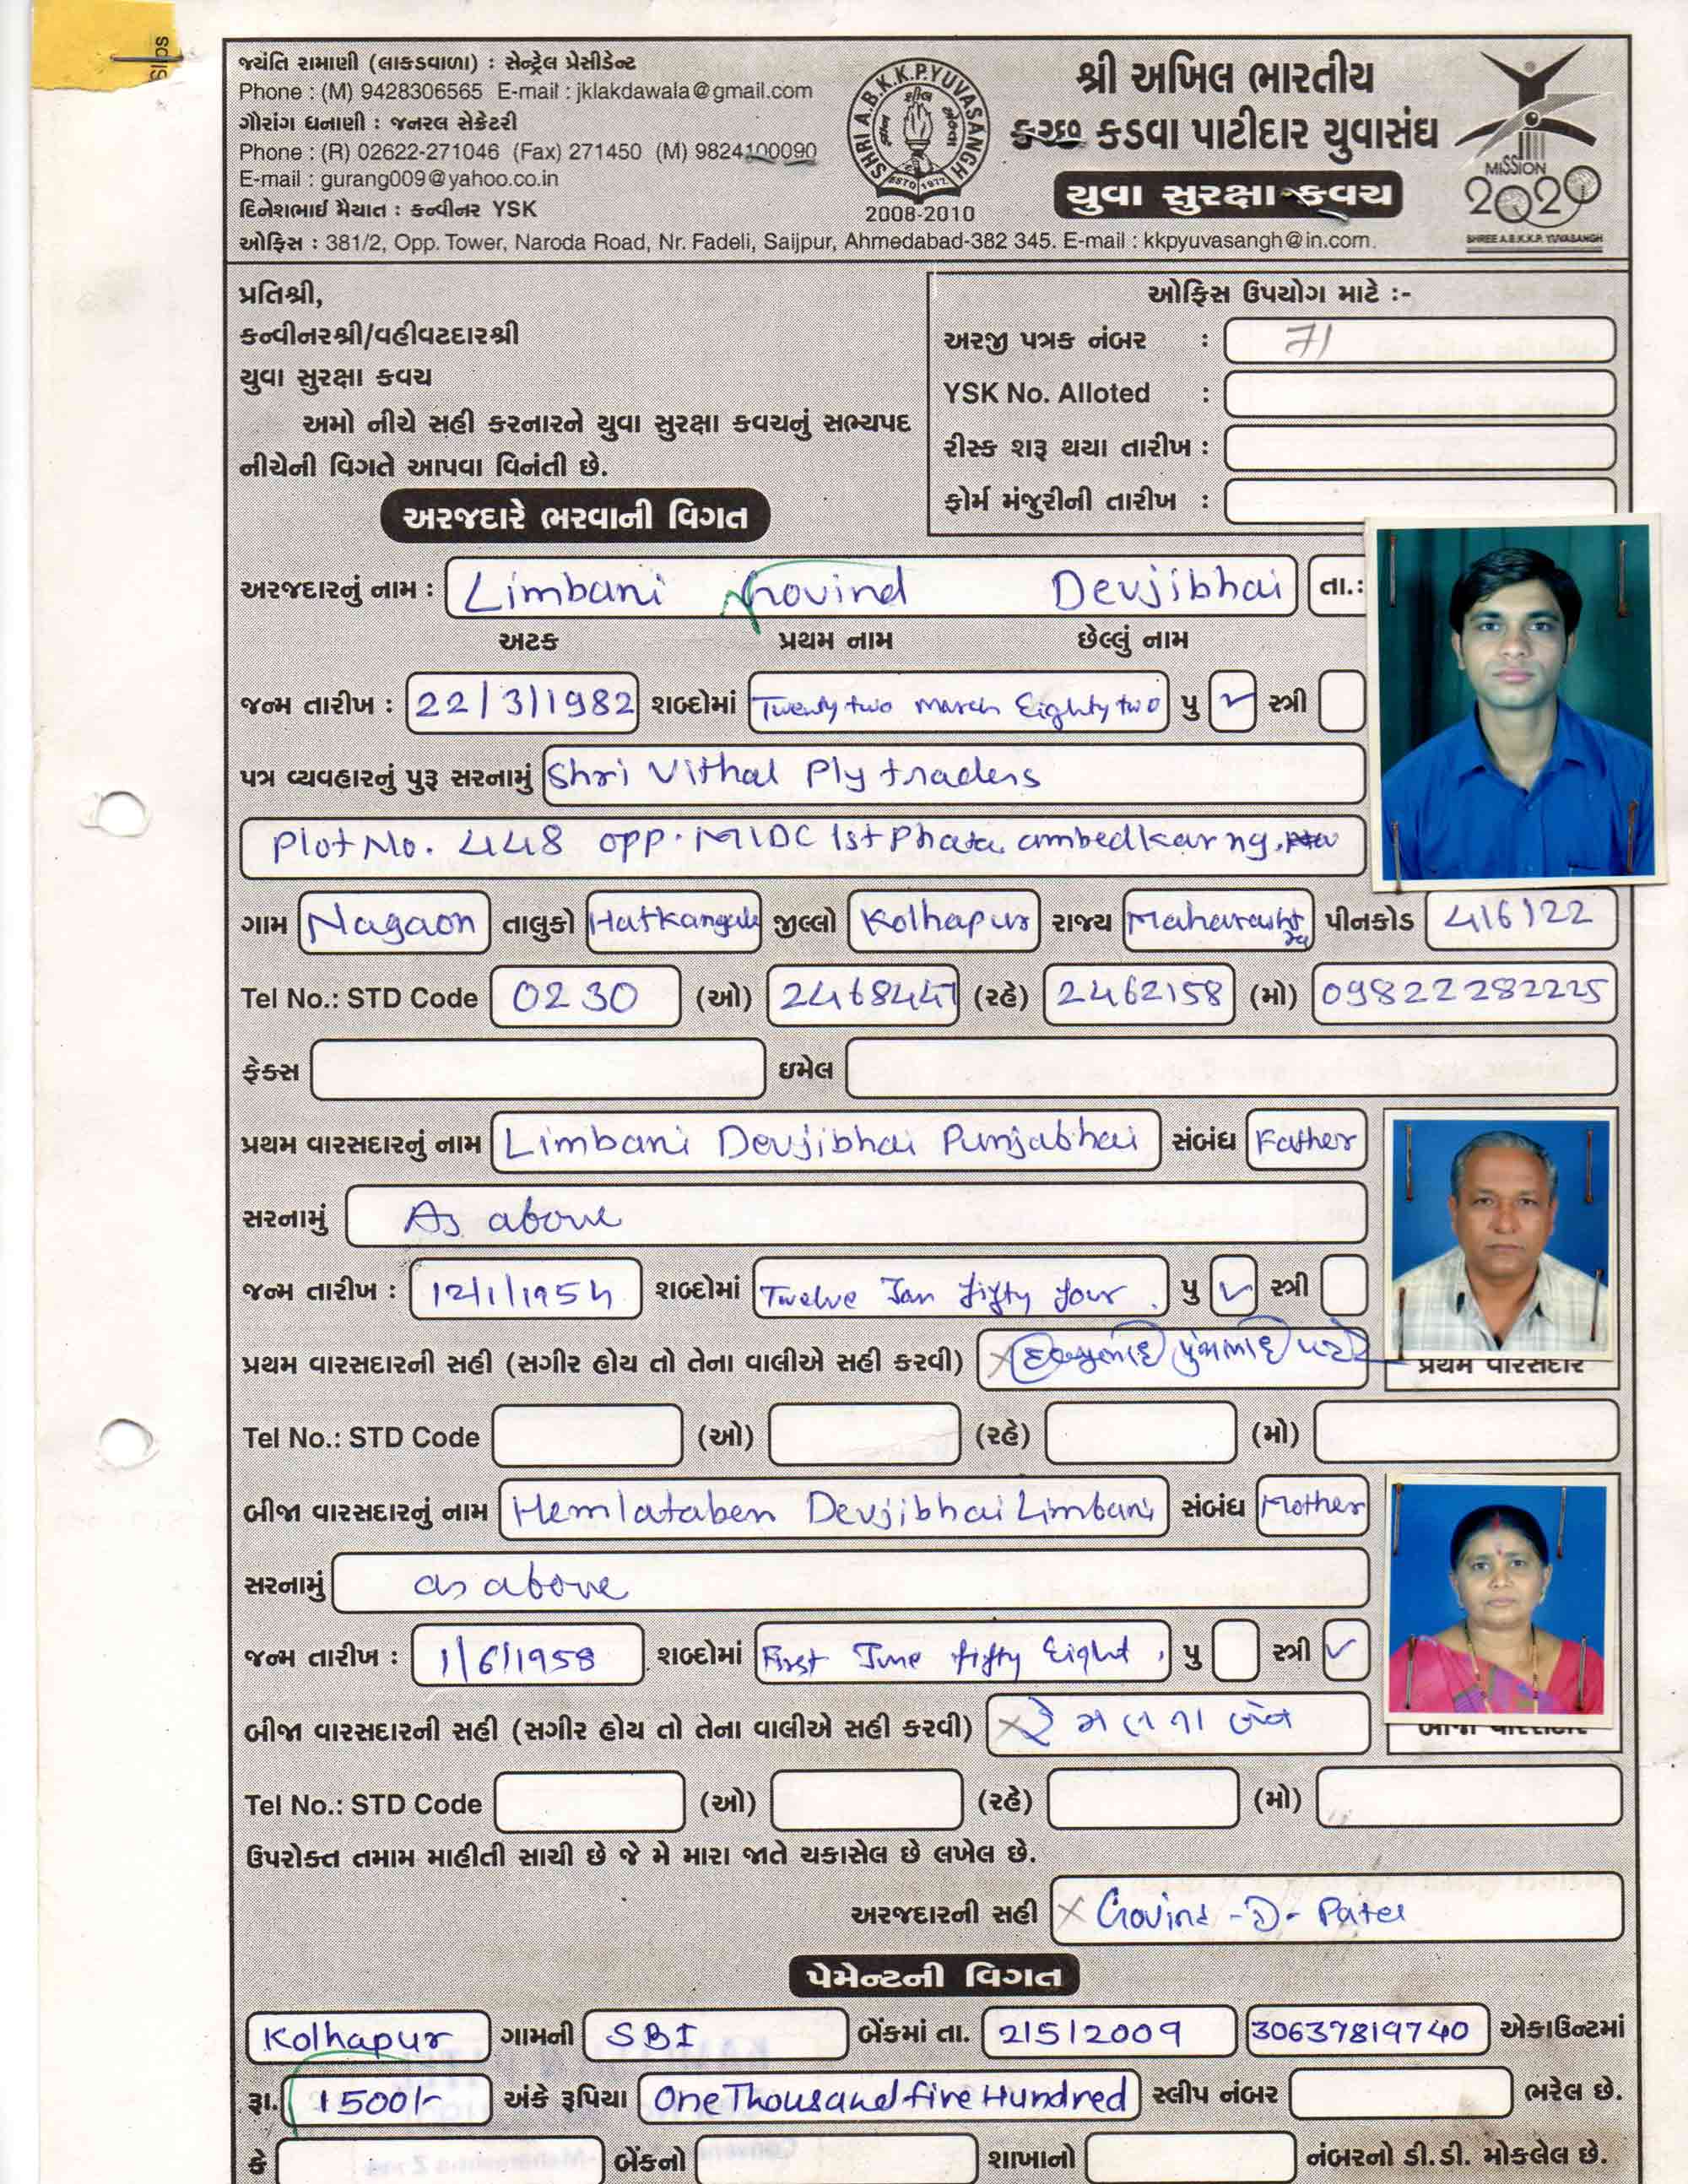 Slips
જ્યંતિ રામાણી (લાકડવાળા) : સેન્ટ્રેલ પ્રેસીડેન્ટ
Phone : (M) 9428306565 E-mail : jklakdawala@gmail.com
ગૌરાંગ ધનાણી : જનરલ સેક્રેટરી
Phone : (R) 02622-271046 (Fax) 271450 (M) 9824100090
E-mail : gurang009@yahoo.co.in
દિનેશભાઈ મૈયાત : કન્વીનર YSK
SHRI A.B.K.K.P.YUVASANGH
ESTD 1972
2008-2010
શ્રી અખિલ ભારતીય
કચ્છ કડવા પાટીદાર યુવાસંઘ
યુવા સુરક્ષા કવચ
MISSION
2020
SHREE A.B.K.K.P. YUVASANGH
ઓફિસ : 381/2, Opp. Tower, Naroda Road, Nr. Fadeli, Saijpur, Ahmedabad-382 345. E-mail : kkpyuvasangh@in.com.
પ્રતિશ્રી,
કન્વીનરશ્રી/વહીવટદારશ્રી
યુવા સુરક્ષા કવચ
અમો નીચે સહી કરનારને યુવા સુરક્ષા કવચનું સભ્યપદ
નીચેની વિગતે આપવા વિનંતી છે.
ઓફિસ ઉપયોગ માટે :-
અરજી પત્રક નંબર : 71
YSK No. Alloted :
રીસ્ક શરૂ થયા તારીખ :
ફોર્મ મંજુરીની તારીખ :
અરજદારે ભરવાની વિગત
અરજદારનું નામ : Limbani Govind Devjibhai તા.:
અટક પ્રથમ નામ છેલ્લું નામ
જન્મ તારીખ : 22/3/1982 શબ્દોમાં Twenty two march Eighty two પુ ✓ સ્ત્રી
પત્ર વ્યવહારનું પુરૂ સરનામું Shri Vithal Ply traders
Plot No. 448 opp. MIDC 1st Phata ambedkar ng.
ગામ Nagaon તાલુકો Hatkangale જીલ્લો Kolhapur રાજ્ય Maharashtra પીનકોડ 416122
Tel No.: STD Code 0230 (ઓ) 2468447 (રહે) 2462158 (મો) 09822282225
ફેક્સ ઇમેલ
પ્રથમ વારસદારનું નામ Limbani Devjibhai Punjabhai સંબંધ Father
સરનામું As above
જન્મ તારીખ : 12/1/1954 શબ્દોમાં Twelve Jan fifty four. પુ ✓ સ્ત્રી
પ્રથમ વારસદારની સહી (સગીર હોય તો તેના વાલીએ સહી કરવી)
પ્રથમ વારસદાર
Tel No.: STD Code (ઓ) (રહે) (મો)
બીજા વારસદારનું નામ Hemlataben Devjibhai Limbani સંબંધ Mother
સરનામું as above
જન્મ તારીખ : 1/6/1958 શબ્દોમાં First June fifty Eight, પુ સ્ત્રી ✓
બીજા વારસદારની સહી (સગીર હોય તો તેના વાલીએ સહી કરવી) x હેમલતા બેન
બીજા વારસદાર
Tel No.: STD Code (ઓ) (રહે) (મો)
ઉપરોક્ત તમામ માહીતી સાચી છે જે મે મારા જાતે ચકાસેલ છે લખેલ છે.
અરજદારની સહી x Govind - D - Patel
પેમેન્ટની વિગત
Kolhapur ગામની SBI બેંકમાં તા. 2/5/2009 30637819740 એકાઉન્ટમાં
રૂા. 1500/- અંકે રૂપિયા One Thousand five Hundred સ્લીપ નંબર ભરેલ છે.
કે બેંકનો શાખાનો નંબરનો ડી.ડી. મોકલેલ છે.